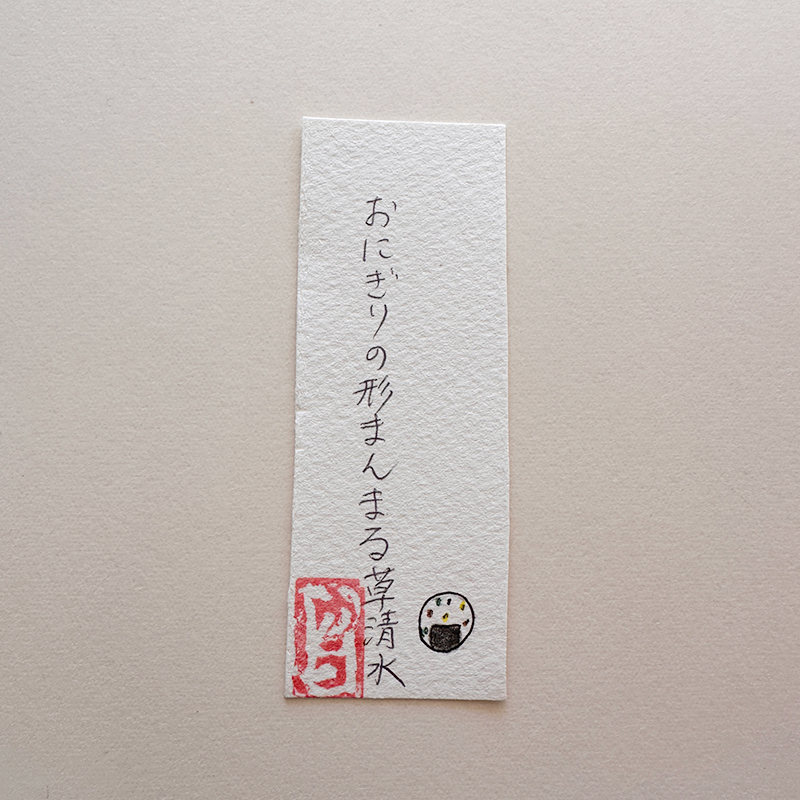 おにぎりの形まんまる草清水